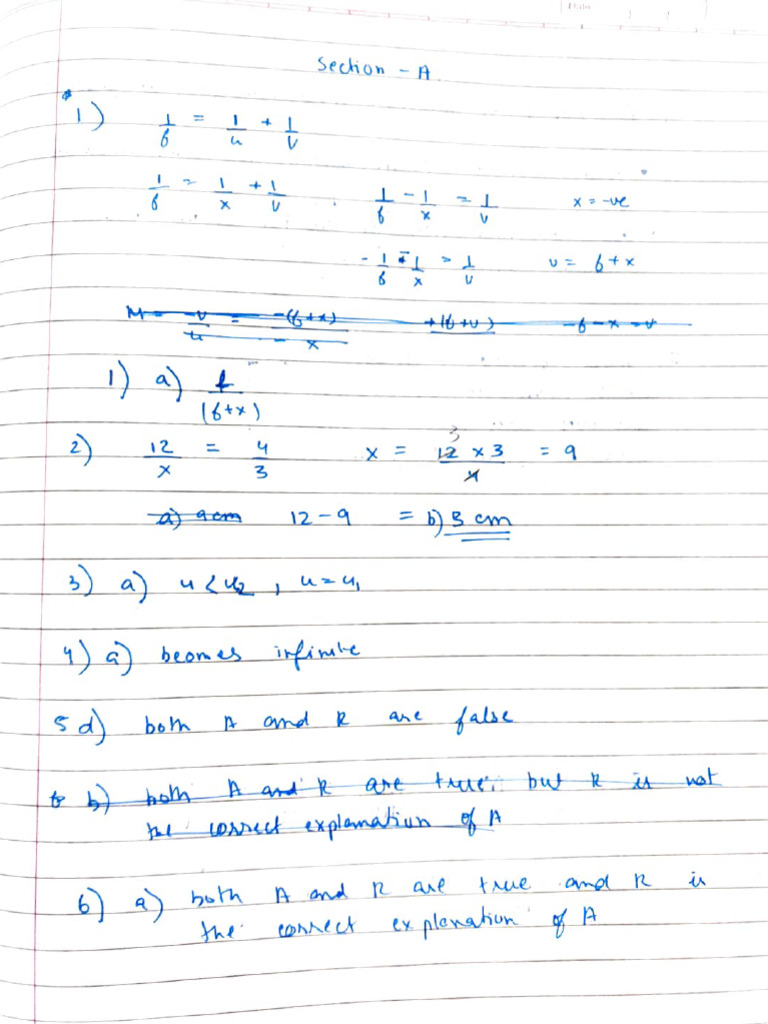 Section - A
1) 1/f = 1/u + 1/v
1/f = 1/x + 1/v 1/f - 1/x = 1/v x = -ve
- 1/f - 1/x = 1/v v = f + x
M = v/u = -(f+x)/-x +(f+v) -f-x = v
1) a) f/(f+x)
2) 12/x = 4/3 x = 12 x 3/4 = 9
3
a) 9cm 12 - 9 = b) 3 cm
3) a) u < u2 , u = u1
4) a) beomes infinite
5 d) both A and R are false
b) both A and R are true, but R is not
the correct explanation of A
6) a) both A and R are true and R is
the correct explanation of A